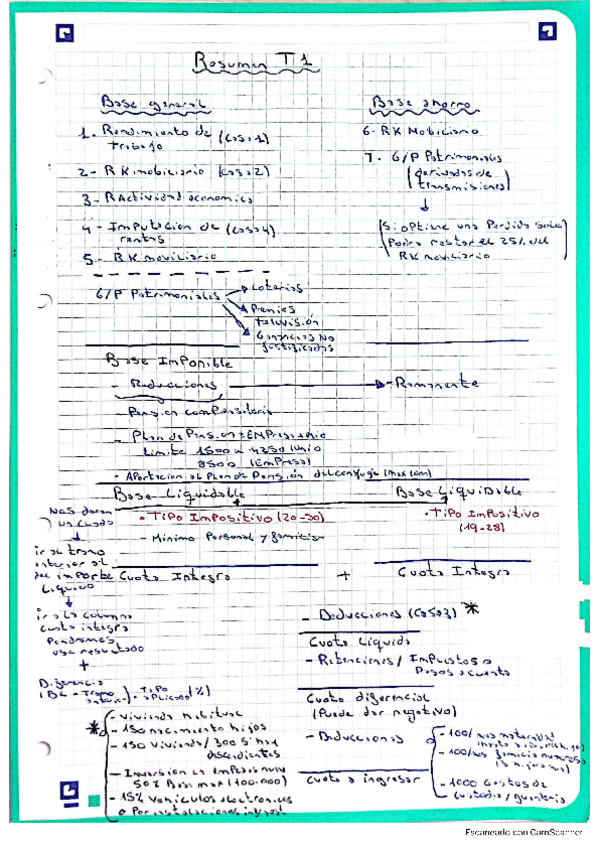 Resumen T1
Base general
1- Rendimiento de trabajo (caso 1)
2- RK inmobiliario (caso 2)
3- R Actividad economica
4- Imputacion de rentas (caso 4)
5- RK moviliario
G/P Patrimoniales
Loterias
Premios television
Ganancias NO justificadas
Base ahorro
6- RK Mobiliario
7- G/P Patrimoniales
(derivadas de transmisiones)
(Si optine una Perdida solo
Podra restar el 25% del
RK moviliario)
Base Imponible
- Reducciones
- Remanente
- Pension compensatoria
- Plan de Pension
Limite 1500 a 4250
8500 (Empresa)
- Aportacion al Plan de Pension del conyuge
Base Liquidable
Base Liquidable
• Tipo Impositivo (20-30)
• Tipo Impositivo
(19-28)
- Minimo Personal y familiar
Nos daran
un cuadro
ir al tramo
interior al
del importe
Liquido
ir a la columna
cuota integra
Pondremos
ese resultado
+
Diferencia
Cuota Integra
+
Cuota Integra
- Deducciones (caso 3) *
Cuota Liquida
- Retenciones / Impuestos o
Pagos a cuenta
Cuota diferencial
(Puede dar negativo)
- Deducciones
Cuota a ingresar
* - vivienda habitual
- 150 nacimiento hijos
- Inversion en empresas nuev
50% Base max (100.000)
- 15% vehiculos electronicos
- 100/mes maternidad
- 100/mes familia numerosa
- 1000 Gastos de
custodia / guarderia
Escaneado con CamScanner